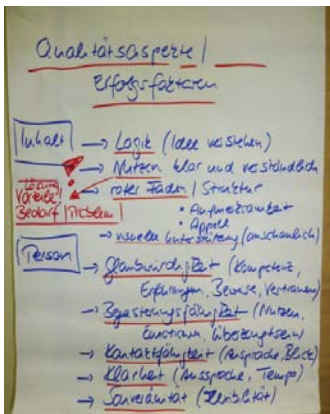 Qualitätsaspekte /
Erfolgsfaktoren
Inhalt
→ Logik (Idee verstehen)
→ Nutzen klar und verständlich
→ roter Faden / Struktur
• Aufmerksamkeit
• Appell
→ visuelle Unterstützung (anschaulich)
Lösung
Vorteile /
Bedarf / Problem
Person
→ Glaubwürdigkeit (Kompetenz,
Erfahrungen, Beweise, Vertrauen)
→ Begeisterungsfähigkeit (Nutzen,
Emotionen, Überzeugtsein)
→ Kontaktfähigkeit (Ansprache, Blick)
→ Klarheit (Aussprache, Tempo)
→ Souveränität (Flexibilität)